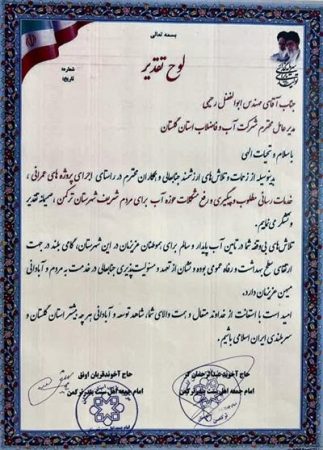 بسمه تعالی
لوح تقدیر
شماره:
تاریخ:
جناب آقای مهندس ابوالفضل رحیمی
مدیرعامل محترم شرکت آب و فاضلاب استان گلستان
با سلام و تحیات الهی
بدینوسیله از زحمات و تلاش‌های ارزشمند جنابعالی و همکاران محترم در راستای اجرای پروژه‌های عمرانی،
خدمات رسانی مطلوب و پیگیری و رفع مشکلات حوزه آب برای مردم شریف شهرستان ترکمن، صمیمانه تقدیر
و تشکر می‌نمایم.
تلاش‌های بی‌وقفه شما در تامین آب پایدار و سالم برای هموطنان عزیزمان در این شهرستان، گامی بلند در جهت
ارتقای سطح بهداشت و رفاه عمومی بوده و نشان از تعهد و مسئولیت‌پذیری جنابعالی در خدمت به مردم و آبادانی
میهن عزیزمان دارد.
امید است با استعانت از خداوند متعال و همت والای شما، شاهد توسعه و آبادانی هر چه بیشتر استان گلستان و
سربلندی ایران اسلامی باشیم.
حاج آخوند عبدالرحمان
امام جمعه اهل سنت بندرترکمن
حاج آخوند قربان اونق
امام جمعه اهل سنت بندرترکمن